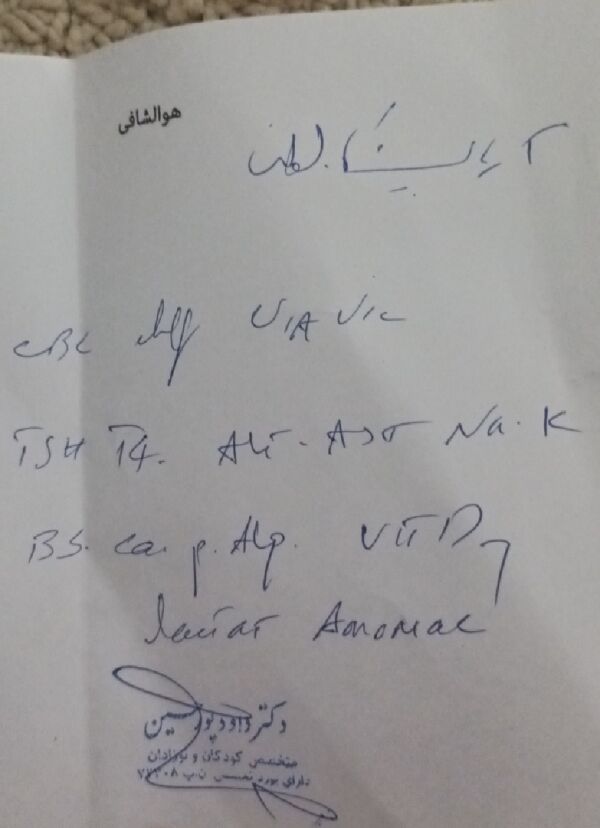 هوالشافی
آزمایشگاه
CBC diff U/A U/C
TSH T4. ALT - AST Na. K
BS. Ca. p. Alp. VIT D
lactat Amoniac
دکتر داود پورحسین
متخصص کودکان و نوزادان
دارای بورد تخصصی ن.پ